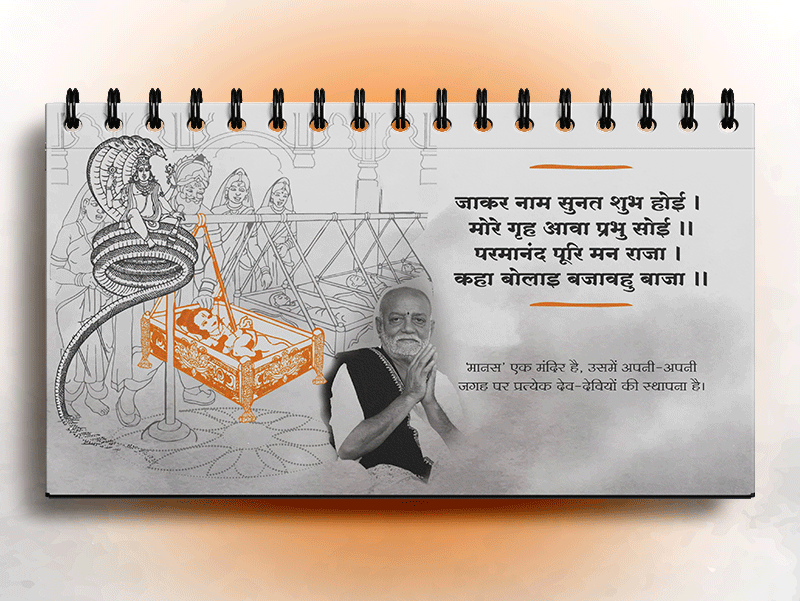 जाकर नाम सुनत शुभ होई ।
मोरे गृह आवा प्रभु सोई ।।
परमानंद पूरि मन राजा ।
कहा बोलाइ बजावहु बाजा ।।
'मानस' एक मंदिर है, उसमें अपनी-अपनी
जगह पर प्रत्येक देव-देवियों की स्थापना है।